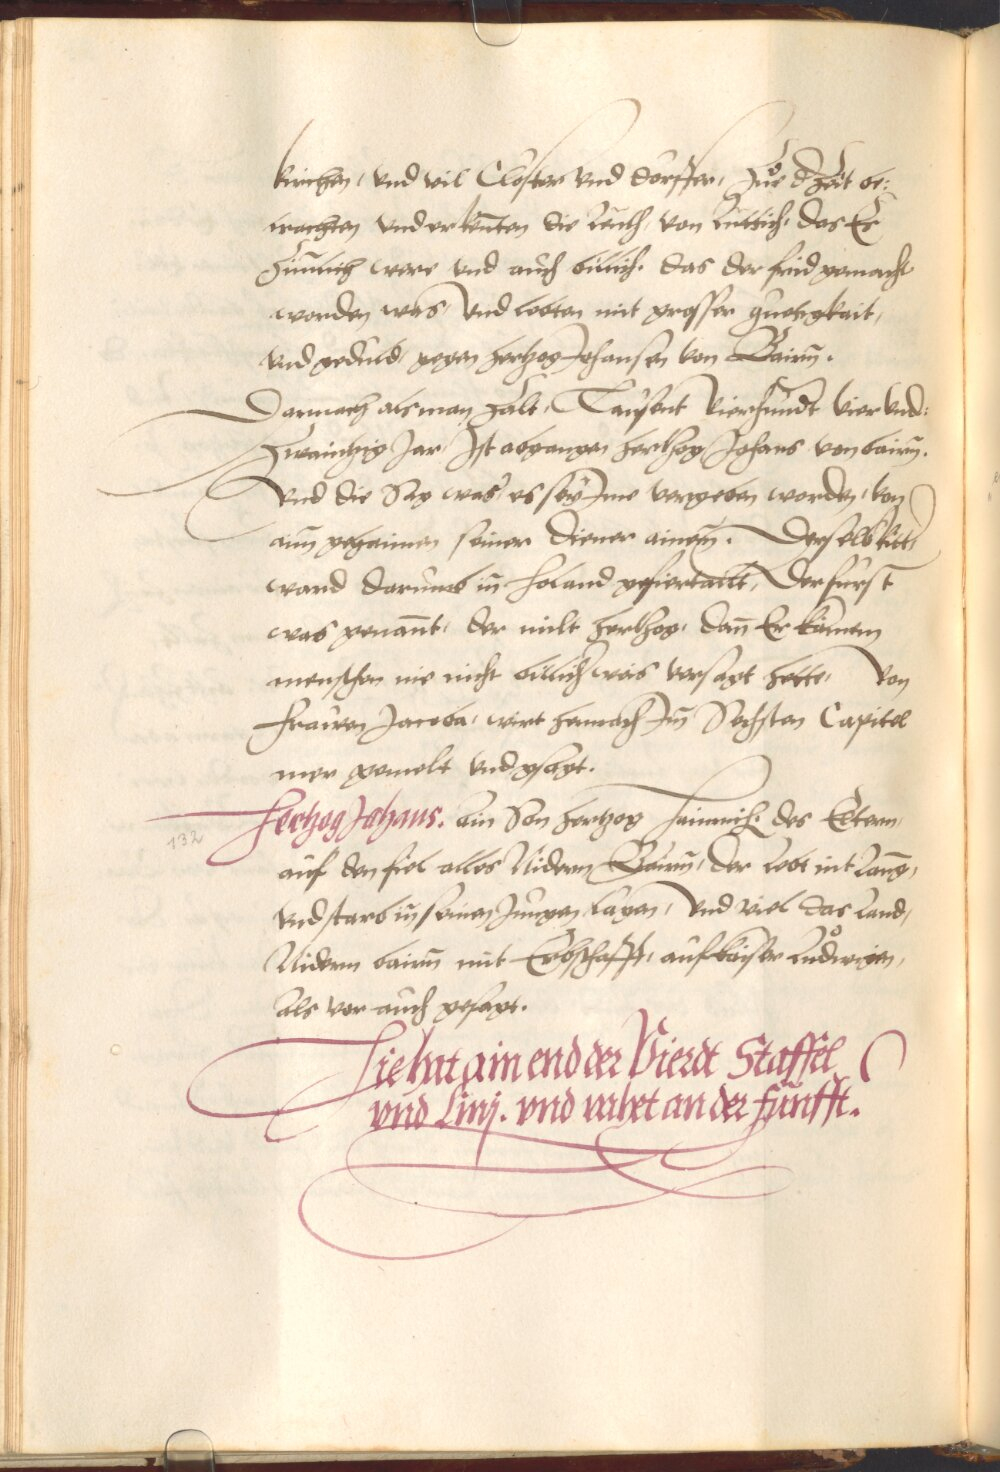 kirchen, vnd vil Closter vnd dorffer, Zue d Zeit be:
trachten vnd erkenten die leuth, von Luttich, das Er
Zimlich were vnd auch billich. das der frid gemacht
worden was, vnd lebten mit grosser guetigkait,
vnd gedult, gegen hertzog Johansen von Bairn.
Darnach als man Zalt, Tausent vierhundt vier vnd:
Zwaintzig Jar, Ist abgangen hertzog Johans von bairn.
vnd die Sag was, es sey Ime vergeben worden, von
aim gehaimen seiner diener ainem. Derselb Ritt
ward darumb in holand gefiertailt, Der furst
was genant, der milt hertzog, dann Er kainem
menschen nie nicht billichs was versagt hette, Von
Frawen Jacoba, wirt hernach Im Sechsten Capitel
mer gemelt vnd gsagt.
Hertzog Johans. ein Son hertzog Hainrich des Eltern,
132
auf den fiel alles Nidern Bairn, der lebt nit lang,
vnd starb in seinen Jungen tagen, vnd viel das land,
Nidern bairn mit Erbschafft, auf kaiser Ludwigen,
als vor auch gesagt.
Hie hat ain end der Vierdt Staffel
vnd Linj. vnd vahet an der funfft.